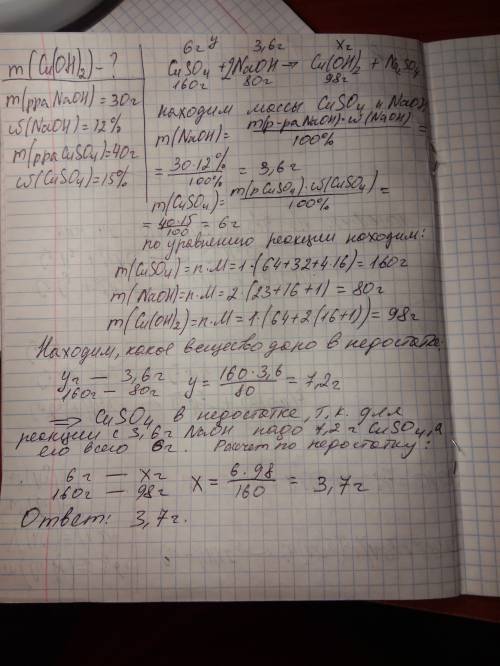 m(Cu(OH)₂) - ?
m(р-ра NaOH) = 30г
ω(NaOH) = 12%
m(р-ра CuSO₄) = 40г
ω(CuSO₄) = 15%
6г y 3,6г xг
CuSO₄ + 2NaOH → Cu(OH)₂ + Na₂SO₄
160г 80г 98г
находим массы CuSO₄ и NaOH
m(NaOH) = m(р-ра NaOH)·ω(NaOH) / 100% =
= 30·12% / 100% = 3,6г
m(CuSO₄) = m(р CuSO₄)·ω(CuSO₄) / 100% =
= 40·15 / 100 = 6г
по уравнению реакции находим:
m(CuSO₄) = n·M = 1·(64+32+4·16) = 160г
m(NaOH) = n·M = 2·(23+16+1) = 80г
m(Cu(OH)₂) = n·M = 1·(64+2(16+1)) = 98г
Находим, какое вещество дано в недостатке.
yг — 3,6г y = 160·3,6 / 80 = 7,2г
160г — 80г
⇒ CuSO₄ в недостатке, т.к. для
реакции с 3,6г NaOH надо 7,2г CuSO₄, а
его всего 6г. Расчет по недостатку:
6г — xг X = 6·98 / 160 = 3,7г
160г — 98г
Ответ: 3,7г.